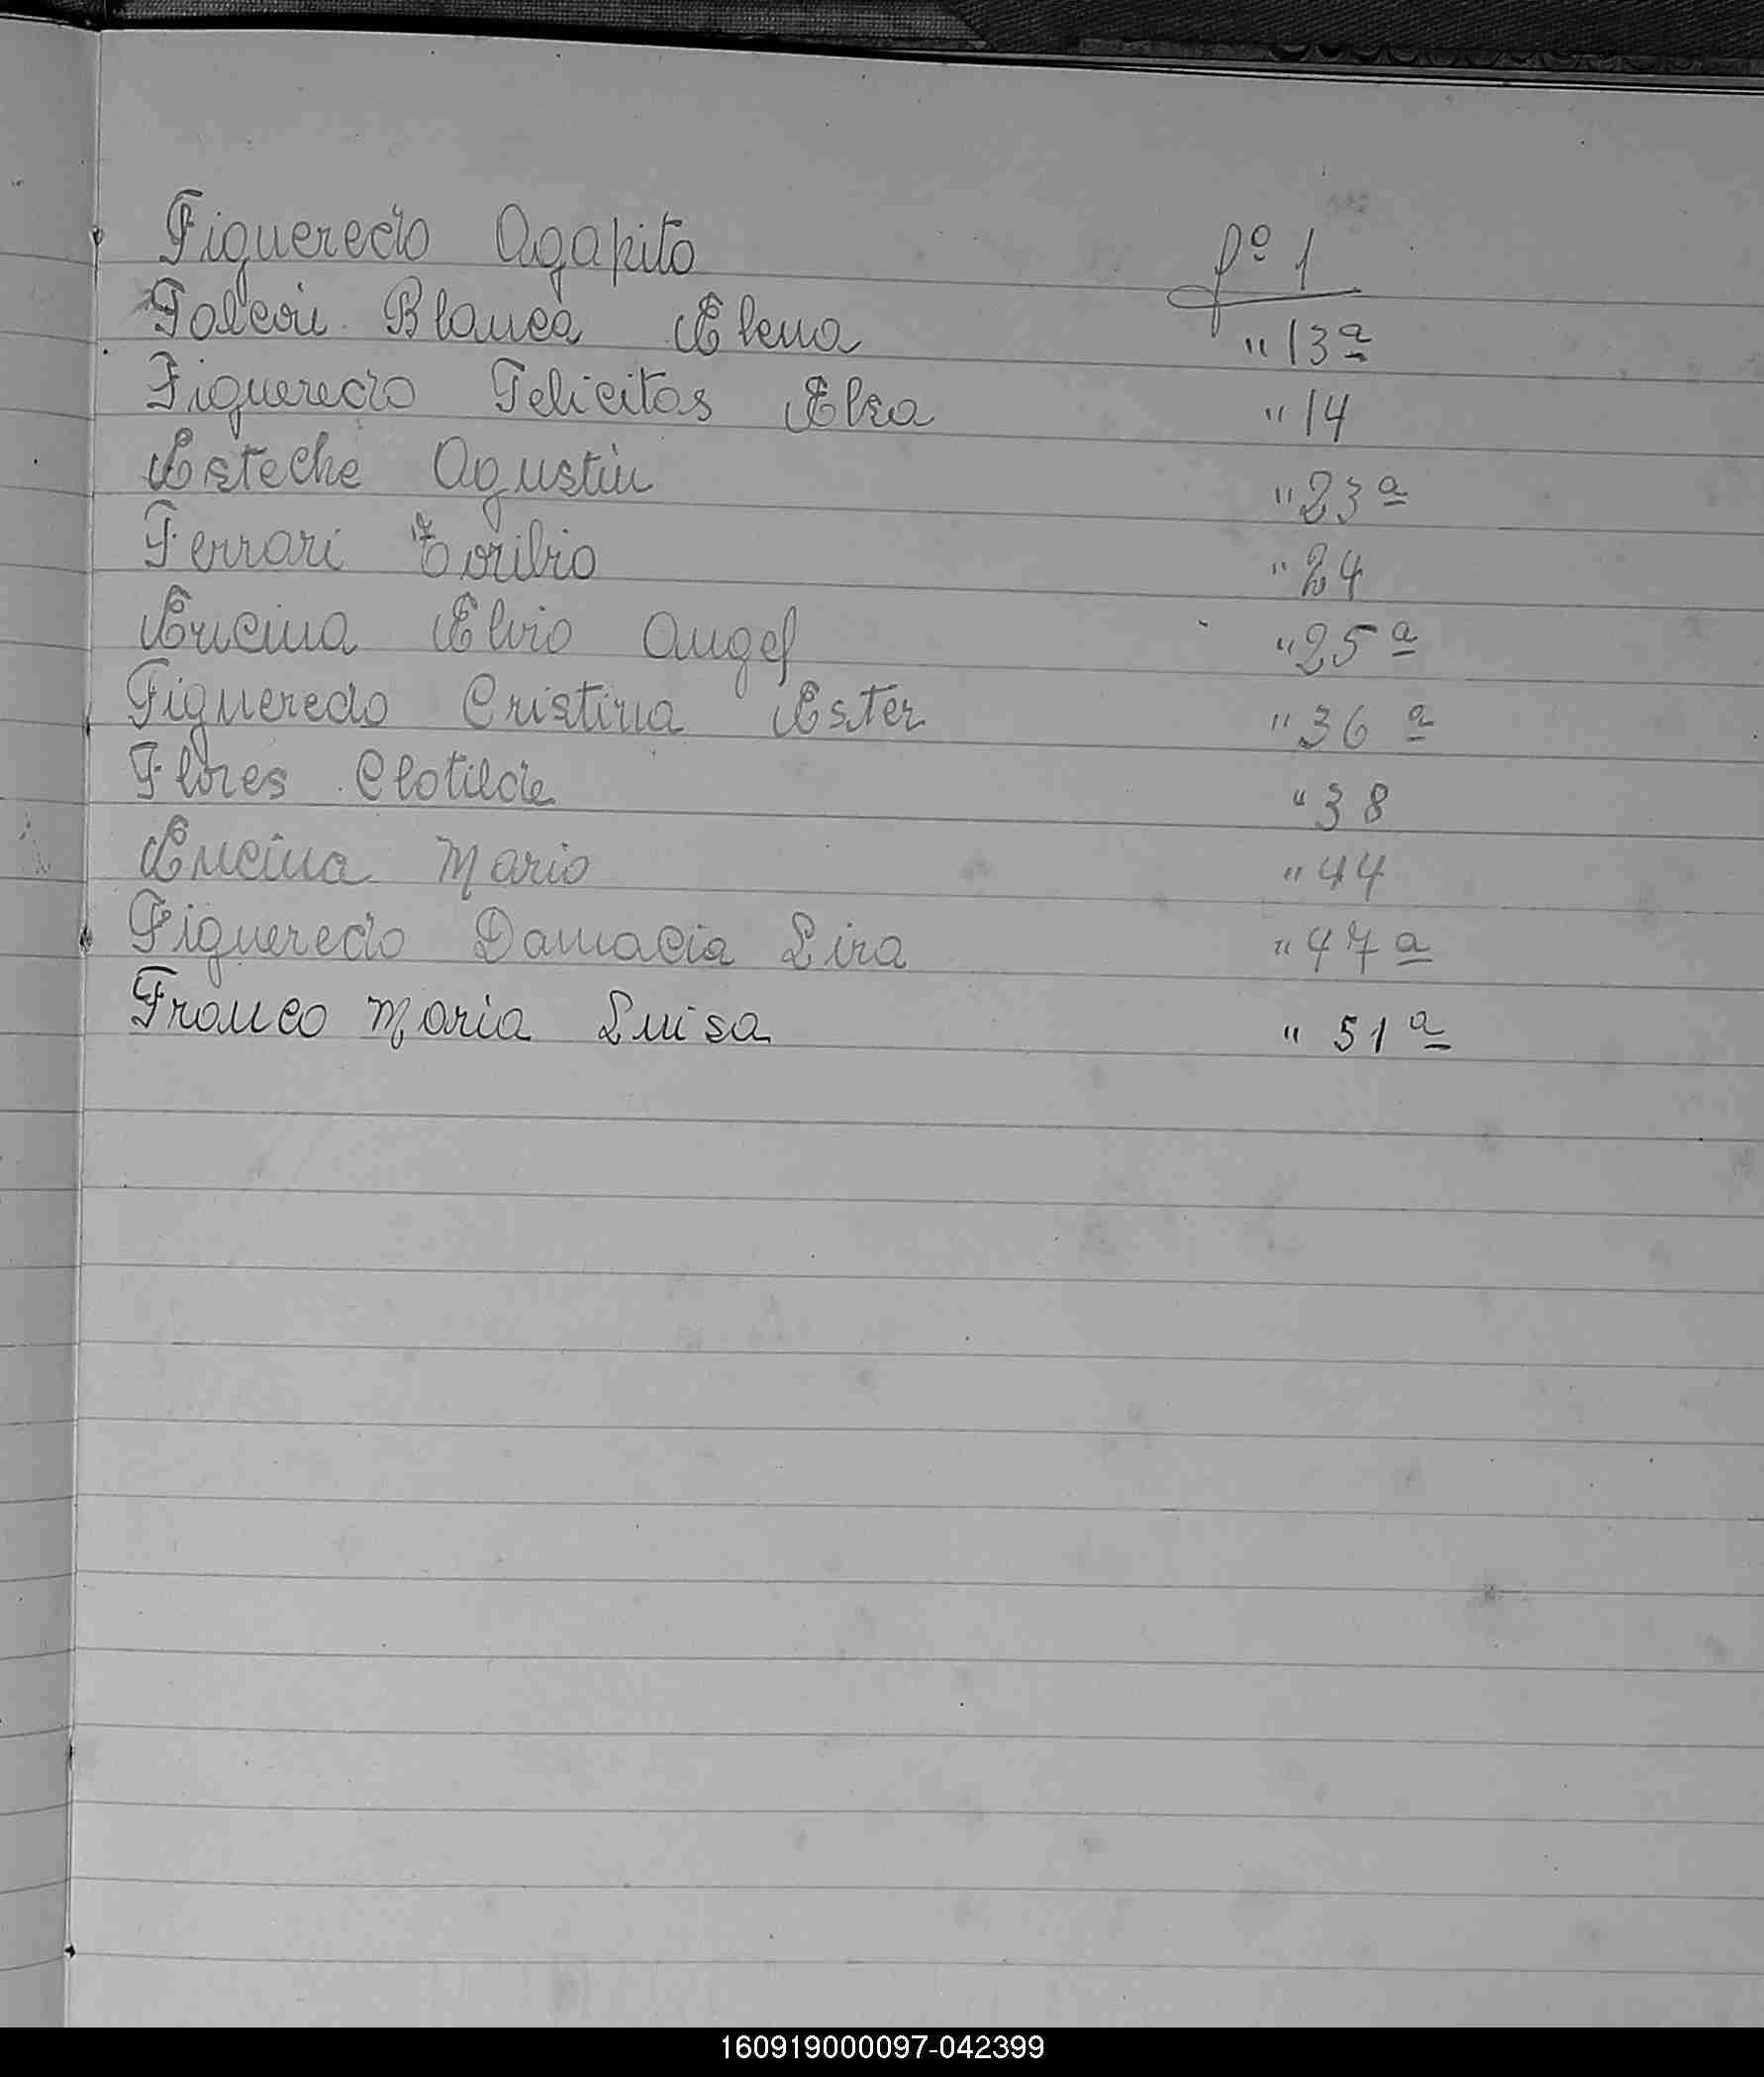 Figueredo Agapito fº 1
Falcón Blanca Elena " 13 a
Figueredo Felicitas Elsa " 14
Esteche Agustín " 23 a
Ferrari Toribio " 24
Encina Elvio Angel " 25 a
Figueredo Cristina Ester " 36 a
Flores Clotilde " 38
Encina Mario " 44
Figueredo Damacia Lira " 47 a
Franco Maria Luisa " 51 a
160919000097-042399